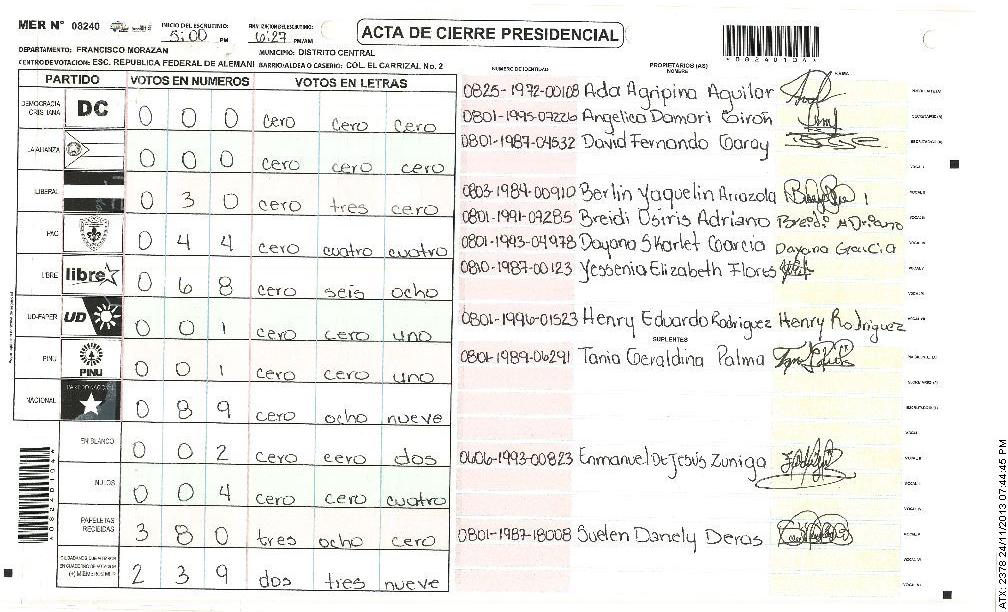 MER N° 08240
INICIO DEL ESCRUTINIO: 5:00 PM
FINALIZACION DEL ESCRUTINIO: 6:27 PM/AM
ACTA DE CIERRE PRESIDENCIAL
*08240104*
DEPARTAMENTO: FRANCISCO MORAZAN
MUNICIPIO: DISTRITO CENTRAL
CENTRO DE VOTACION: ESC. REPUBLICA FEDERAL DE ALEMANI BARRIO/ALDEA O CASERIO: COL. EL CARRIZAL No. 2
PARTIDO VOTOS EN NUMEROS VOTOS EN LETRAS
DEMOCRACIA CRISTIANA DC 0 0 0 cero cero cero
LA ALIANZA 0 0 0 cero cero cero
LIBERAL 0 3 0 cero tres cero
PAC 0 4 4 cero cuatro cuatro
LIBRE libre 0 6 8 cero seis ocho
UD-FAPER UD 0 0 1 cero cero uno
PINU PINU 0 0 1 cero cero uno
NACIONAL PARTIDO NACIONAL 0 8 9 cero ocho nueve
EN BLANCO 0 0 2 cero cero dos
NULOS 0 0 4 cero cero cuatro
PAPELETAS RECIBIDAS 3 8 0 tres ocho cero
2 3 9 dos tres nueve
NUMERO DE IDENTIDAD PROPIETARIOS (AS) NOMBRE FIRMA
0825-1972-00108 Ada Agripina Aguilar
0801-1995-07226 Angelica Damari Giron
0801-1987-04532 David Fernando Garay
0803-1984-00910 Berlin Yaquelin Arriazola
0801-1991-09285 Breidi Osiris Adriano Breidi Adriano
0801-1993-04978 Dayana Skarlet Garcia Dayana Garcia
0810-1987-00123 Yessenia Elizabeth Flores
0801-1996-01523 Henry Eduardo Rodriguez Henry Rodriguez
SUPLENTES
0801-1989-06291 Tania Geraldina Palma
0606-1993-00823 Enmanuel De Jesús Zuniga
0801-1987-18008 Suelen Danely Deras
ATX: 2378 24/11/2013 07:44:45 PM